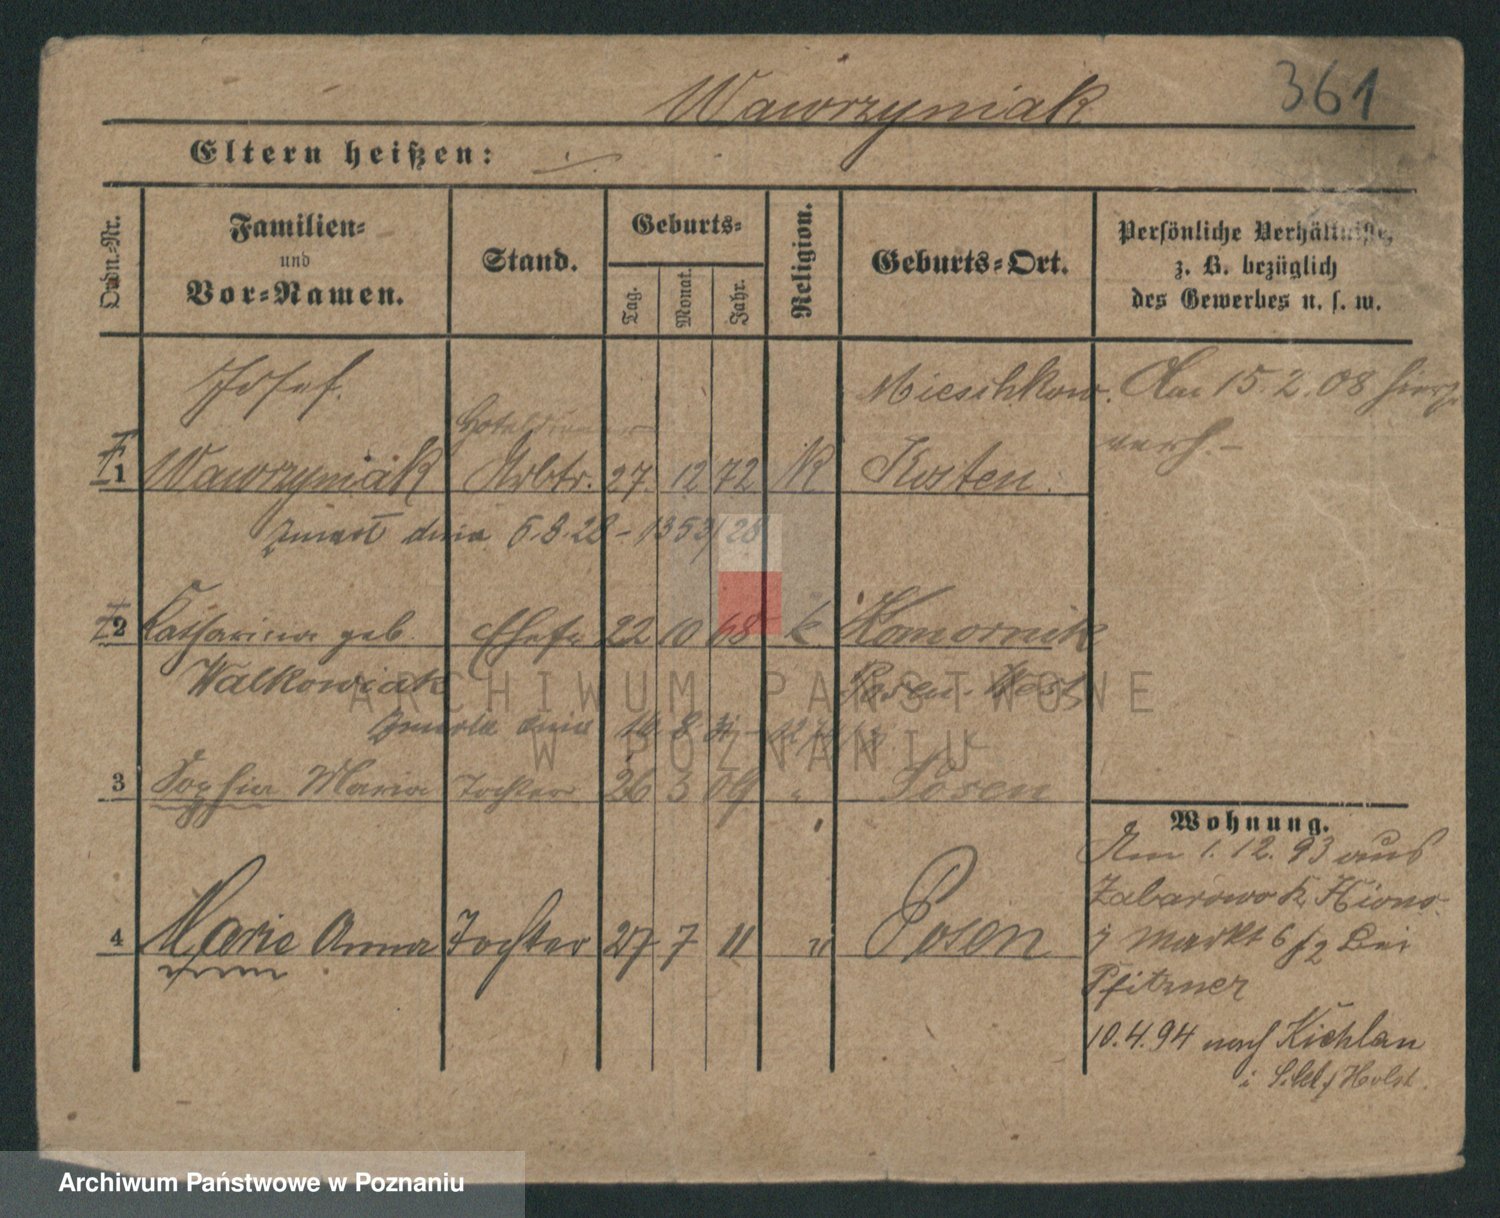 Wawrzyniak
361
Eltern heißen:
Ordn.-Nr.
Familien-
und
Vor-Namen.
Stand.
Geburts-
Tag.
Monat.
Jahr.
Religion.
Geburts-Ort.
Persönliche Verhältnisse,
z. B. bezüglich
des Gewerbes u. s. w.
Josef. Mieschkow. Am 15.2.08 hier
Hoteldiener verh. -
1 Wawrzyniak Arbtr. 27. 12 72 K Kosten.
zmarł dnia 6.8.28 - 1353/28
2 Katharina geb. Ehefr 22 10 68 k. Komornik
Walkowiak Posen-West
zmarła dnia 14 8
3 Sophia Maria Tochter 26 3 09 " Posen
Wohnung.
Am 1.12.93 aus
Zabarowo K. Xions
4 Marie Anna Tochter 27 7 11 " Posen
Markt 6 f2 bei
Pfitzner
10.4.94 nach Kichlan
i Schl. Holst.
ARCHIWUM PAŃSTWOWE
W POZNANIU
Archiwum Państwowe w Poznaniu